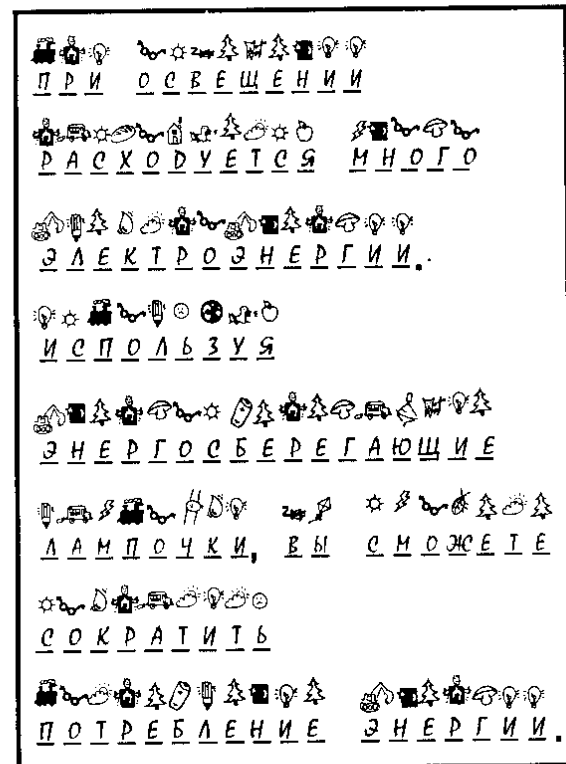 ПРИ ОСВЕЩЕНИИ
РАСХОДУЕТСЯ МНОГО
ЭЛЕКТРОЭНЕРГИИ.
ИСПОЛЬЗУЯ
ЭНЕРГОСБЕРЕГАЮЩИЕ
ЛАМПОЧКИ, ВЫ СМОЖЕТЕ
СОКРАТИТЬ
ПОТРЕБЛЕНИЕ ЭНЕРГИИ.